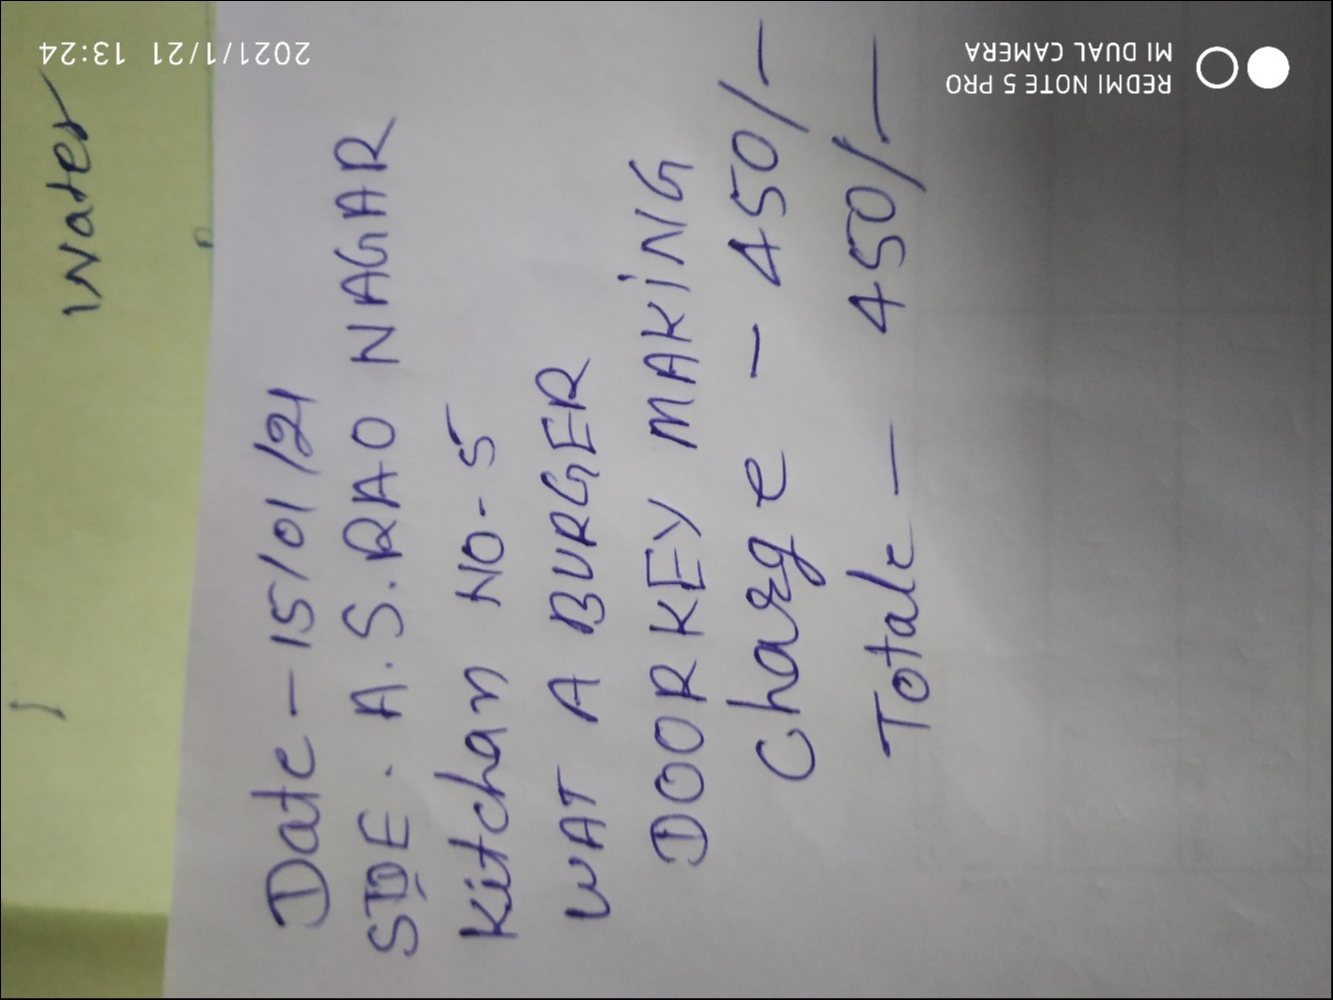 Water
Date - 15/01/21
SDE. A.S.RAO NAGAR
Kitchan NO-5
WAT A BURGER
DOOR KEY MAKING
Charge - 450/-
Totale - 450/-
REDMI NOTE 5 PRO
MI DUAL CAMERA
2021/1/21 13:24